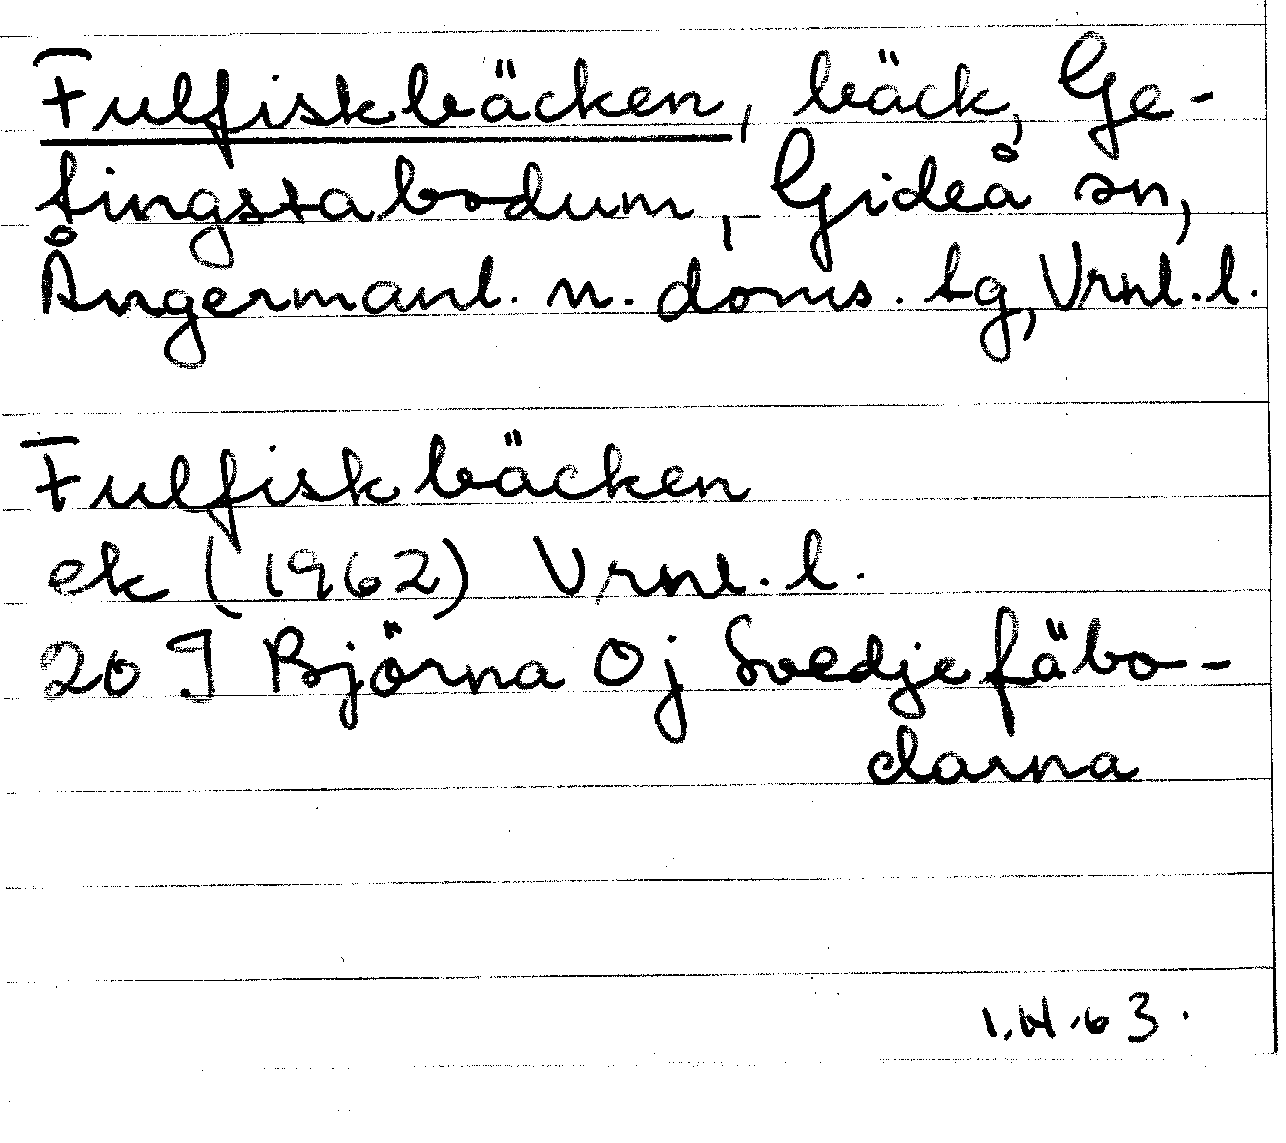 Fulfiskbäcken, bäck, Ge-
tingstabodum, Gideå sn,
Ångermanl. n. doms. tg, Vrnl. l.
Fulfiskbäcken
ek (1962) Vrnl. l.
20 I Björna Oj Svedjefäbo-
darna
I.H.63.